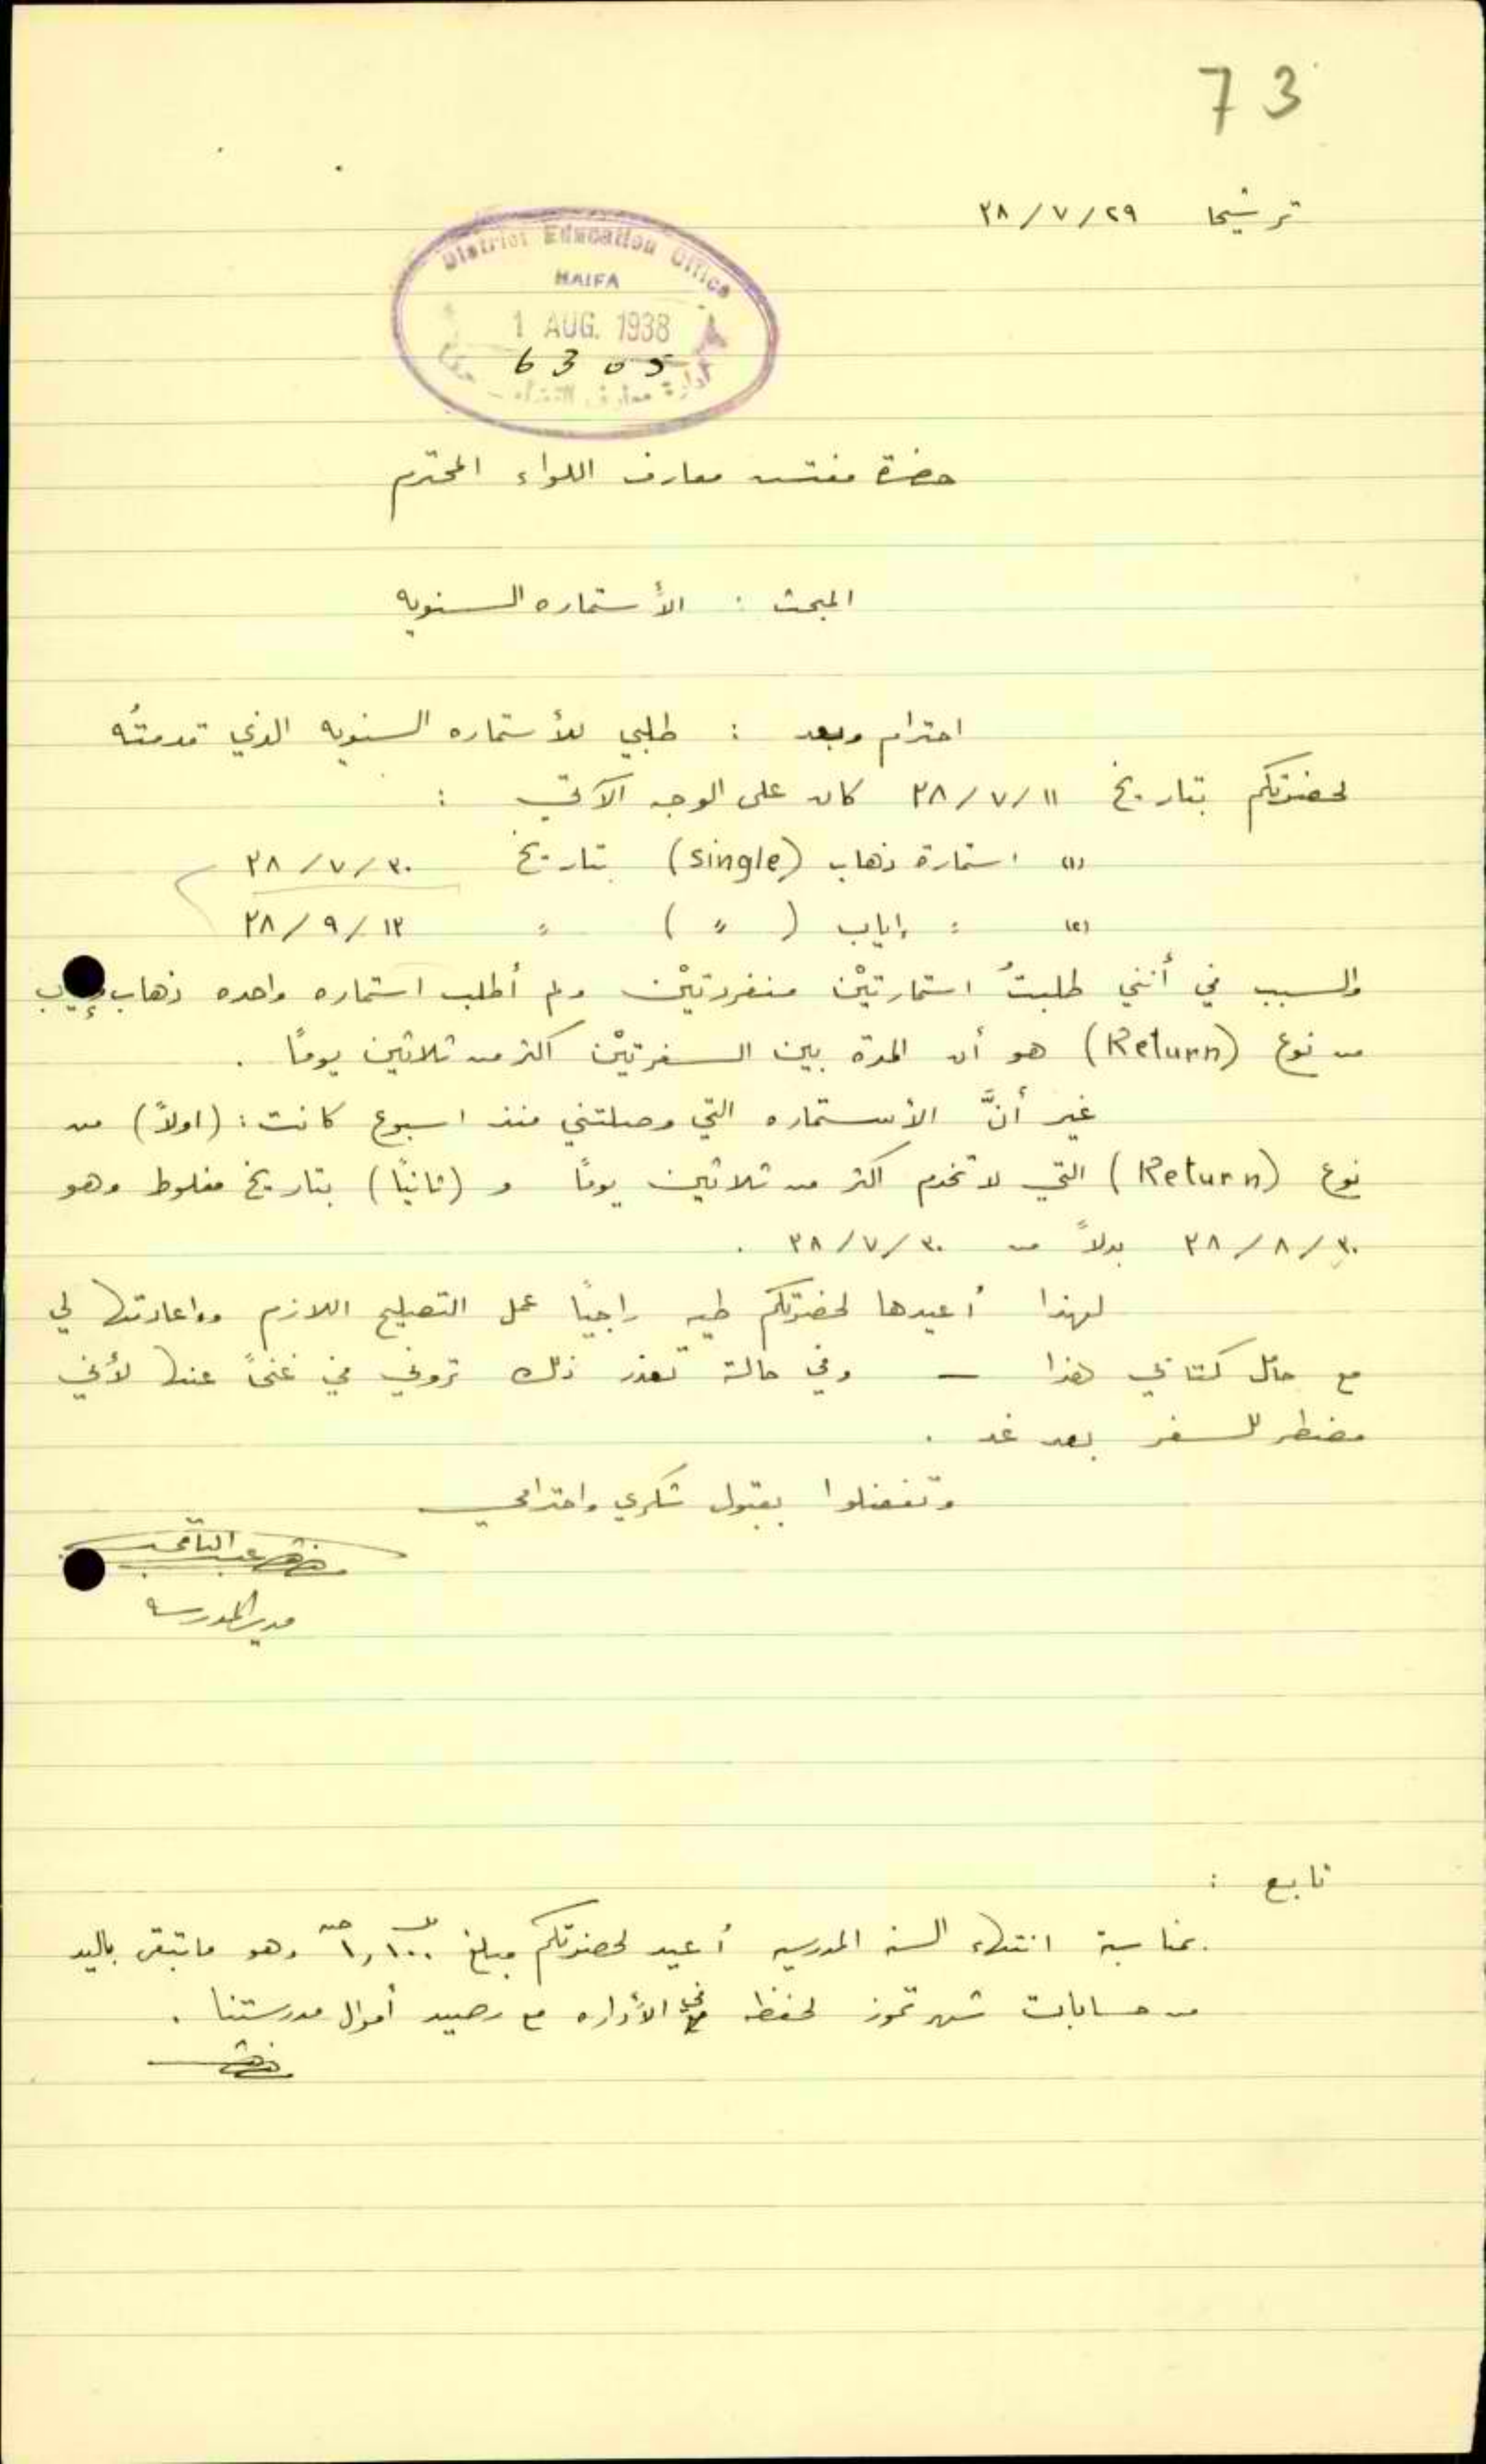 73
ترشيحا ٢٩/٧/٣٨
District Education Office
HAIFA
1 AUG. 1938
6305
ادارة معارف اللواء - حيفا
حضرة مفتش معارف اللواء المحترم
المبحث : الأستماره السنويه
احترام وبعد : طلبي للأستماره السنويه الذي قدمتُه
لحضرتكم بتاريخ ١١/٧/٣٨ كان على الوجه الآتي :
(١) استمارة ذهاب (single) بتاريخ ٣٠/٧/٣٨
(٢) = إياب ( " ) = ١٣/٩/٣٨
والسبب في أنني طلبتُ استمارتيْن منفردتيْن ولم أطلب استماره واحده ذهاب إياب
من نوع (Return) هو أن المدة بين السفرتيْن اكثر من ثلاثين يوماً .
غير أنَّ الأستماره التي وصلتني منذ اسبوع كانت : (اولاً) من
نوع (Return) التي لا تخدم اكثر من ثلاثين يوماً و (ثانياً) بتاريخ مغلوط وهو
٣٠/٨/٣٨ بدلاً من ٣٠/٧/٣٨ .
لهذا أعيدها لحضرتكم طيه راجياً عمل التصليح اللازم واعادتها لي
مع حامل كتابي هذا — وفي حالة تعذر ذلك تروني في غنىً عنها لأني
مضطر للسفر بعد غد .
وتفضلوا بقبول شكري واحترامي
مدير المدرسه
تابع :
بمناسبة انتهاء السنه المدرسيه أعيد لحضرتكم مبلغ ١,١٠٠ وهو ما تبقى باليد
من حسابات شهر تموز لحفظه في الأداره مع رصيد أموال مدرستنا .